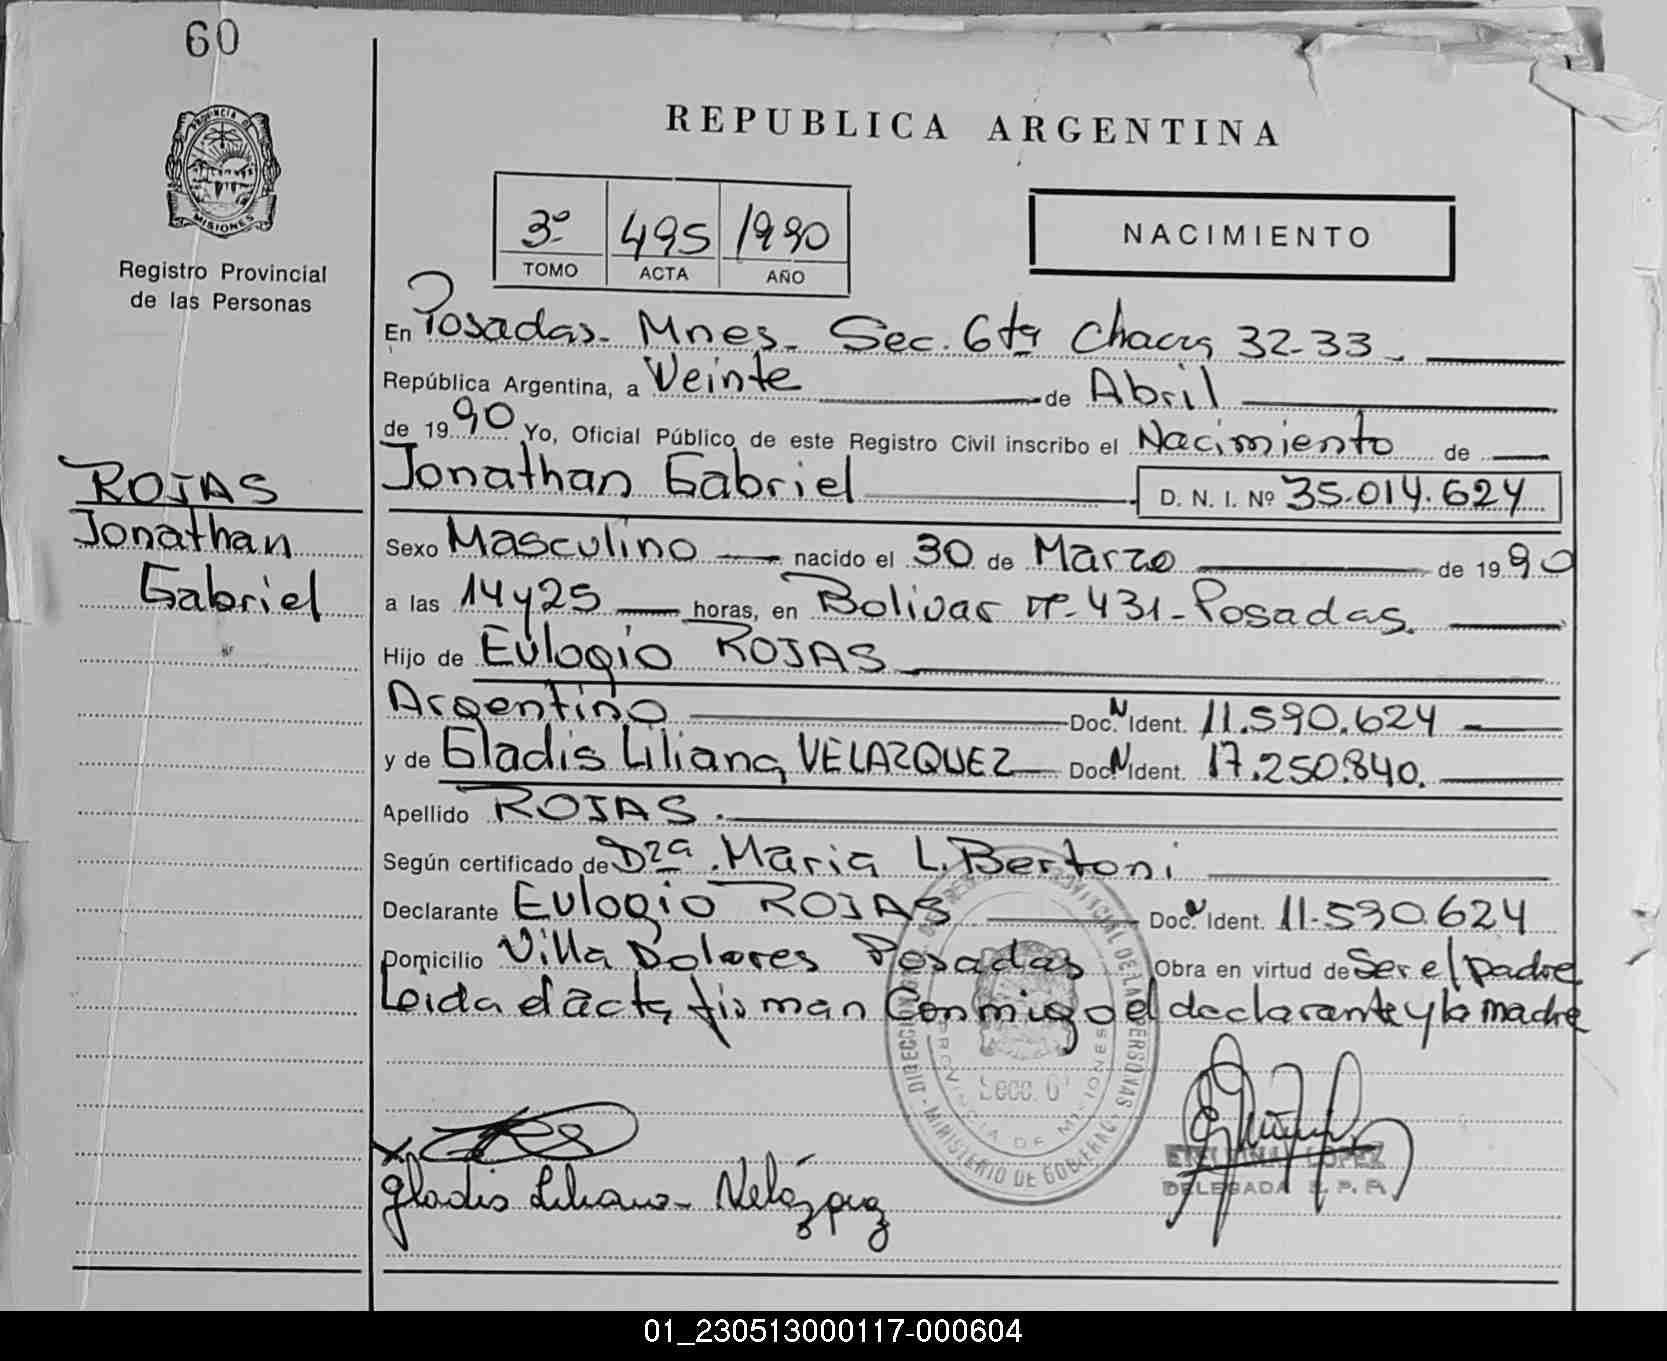 60
PROVINCIA DE
MISIONES
Registro Provincial
de las Personas
REPUBLICA ARGENTINA
3º 495 1990
TOMO ACTA AÑO
NACIMIENTO
En Posadas- Mnes- Sec. 6ta Chacra 32-33.
República Argentina, a Veinte de Abril
de 1990 Yo, Oficial Público de este Registro Civil inscribo el Nacimiento de
ROJAS
Jonathan
Gabriel
Jonathan Gabriel D. N. I. Nº 35.014.624
Sexo Masculino nacido el 30 de Marzo de 1990
a las 14y25 horas, en Bolivar nº 431-Posadas.
Hijo de Eulogio ROJAS
Argentino Doc. N Ident. 11.590.624
y de Gladis Liliana VELAZQUEZ Doc. N Ident. 17.250.840.
Apellido ROJAS.
Según certificado de Dra. Maria L. Bertoni
Declarante Eulogio ROJAS Doc. N Ident. 11.590.624
Domicilio Villa Dolores Posadas Obra en virtud de Ser el padre
Leida el acta firman Conmigo el declarante y la madre
PROVINCIA DE MISIONES
MINISTERIO DE GOBIERNO
Secc. 6
LOPEZ
DELEGADA R. P. P.
Gladis Liliana Velázquez
01_230513000117-000604